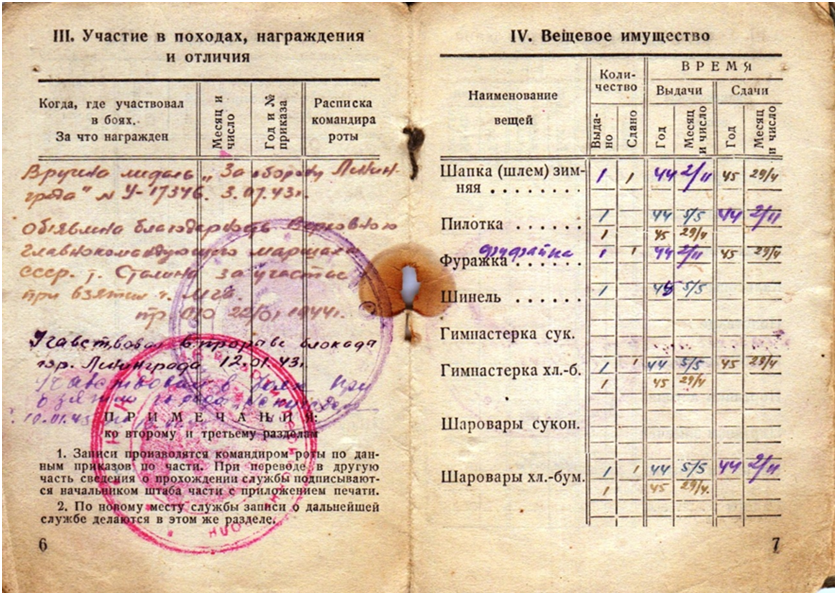 III. Участие в походах, награждения
и отличия
Когда, где участвовал
в боях.
За что награжден
Месяц и
число
Год и №
приказа
Расписка
командира
роты
Вручена медаль „За оборону Ленин-
града" № У-17376. 3.07.43г.
Объявлена благодарность Верховного
главнокомандующего маршала
СССР т. Сталина за участие
при взятии г. Мга.
пр. 010 22/01 1944г.
Участвовал в прорыве блокады
гор. Ленинграда 12.01.43г.
Участвовал в боях при
взятии города
10.01.45
ПРИМЕЧАНИЯ:
ко второму и третьему разделам
1. Записи производятся командиром роты по дан-
ным приказов по части. При переводе в другую
часть сведения о прохождении службы подписывают-
ся начальником штаба части с приложением печати.
2. По новому месту службы записи о дальнейшей
службе делаются в этом же разделе.
6
IV. Вещевое имущество
Наименование
вещей
Коли-
чество
ВРЕМЯ
Выдачи
Сдачи
Выда-
но
Сдано
Год
Месяц
и число
Год
Месяц
и число
Шапка (шлем) зим-
няя . . . . . . . . 1 1 44 2/11 45 29/4
Пилотка . . . . . . 1 44 5/5 44 2/11
1 45 29/4
фуфайка
Фуражка . . . . . . 1 1 44 2/11 45 29/4
Шинель . . . . . . 1 44 5/5
Гимнастерка сук.
Гимнастерка хл.-б. 1 1 44 5/5 45 29/4
1 45 29/4
Шаровары сукон.
Шаровары хл.-бум. 1 1 44 5/5 44 2/11
1 45 29/4.
7